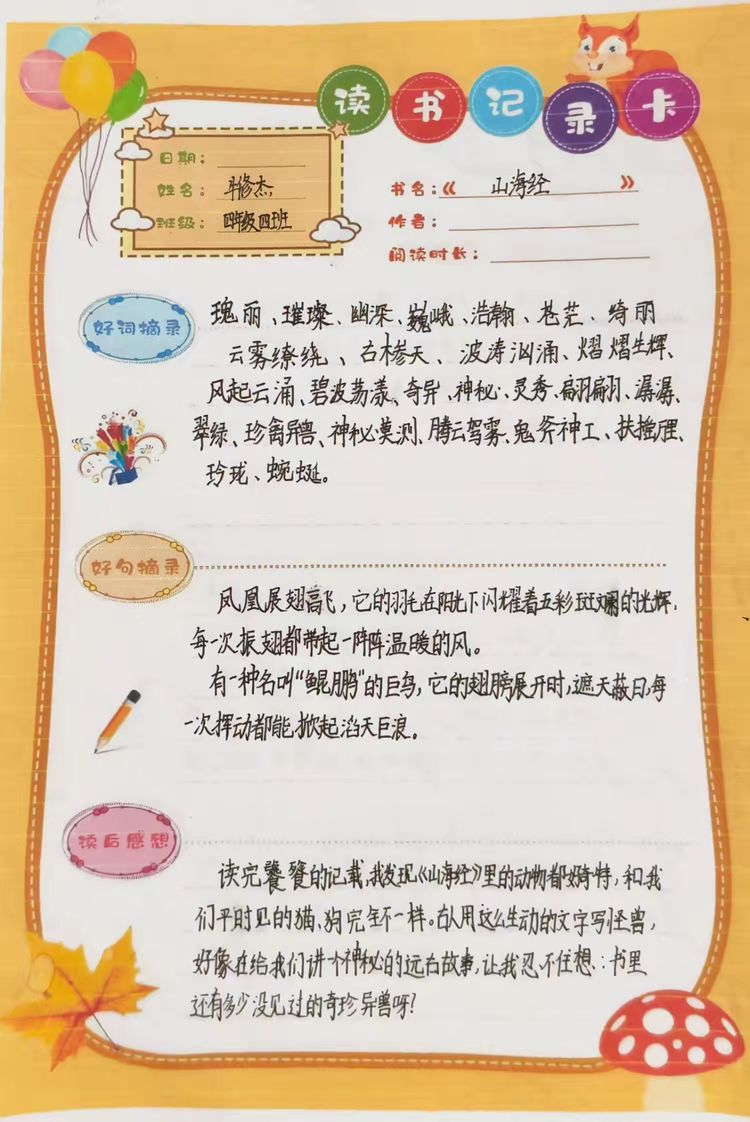 读书记录卡
日期：
姓名：牛修杰
班级：四年级四班
书名：《山海经》
作者：
阅读时长：
好词摘录
瑰丽、璀璨、幽深、巍峨、浩瀚、苍茫、绮丽
云雾缭绕、古木参天、波涛汹涌、熠熠生辉、
风起云涌、碧波荡漾、奇异、神秘、灵秀、翩翩、潺潺、
翠绿、珍禽异兽、神秘莫测、腾云驾雾、鬼斧神工、扶摇
玲珑、蜿蜒。
好句摘录
凤凰展翅高飞，它的羽毛在阳光下闪耀着五彩斑斓的光辉，
每一次振翅都带起一阵阵温暖的风。
有一种名叫“鲲鹏”的巨鸟，它的翅膀展开时，遮天蔽日，每
一次挥动都能掀起滔天巨浪。
读后感想
读完饕餮的记载，我发现《山海经》里的动物都好奇特，和我
们平时见的猫、狗完全不一样。古人用这么生动的文字写怪兽，
好像在给我们讲个神秘的远古故事，让我忍不住想：书里
还有多少没见过的奇珍异兽呀？